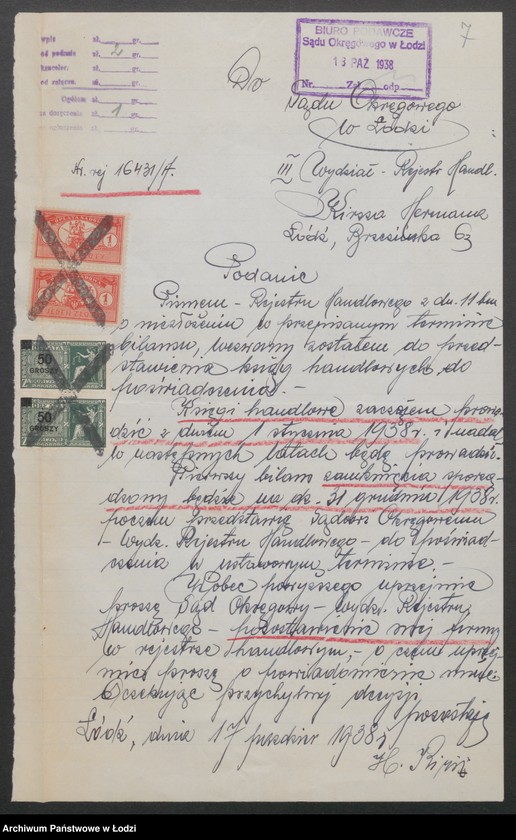 7
wpis zł. gr.
od podania zł. 2 gr.
kancelar. zł. gr.
zł. gr.
Ogółem zł. gr.
za doręczenie zł. 1 gr.
ogłoszenie zł. gr.
BIURO PODAWCZE
Sądu Okręgowego w Łodzi
18 PAŹ 1938
Nr. Zał. odp.
Do
Sądu Okręgowego
w Łodzi
III Wydział - Rejestr Handl.
Nr. rej 16431/A.
Hermana
Łódź, Brzezińska 63
Podanie
Pismem - Rejestru Handlowego z dn. 11 bm
o niezłożeniu w przepisanym terminie
bilansu, wezwany zostałem do przed-
stawienia ksiąg handlowych do
poświadczenia. -
Księgi handlowe zacząłem prowa-
dzić z dniem 1 stycznia 1938 r. i nadal
w następnych latach będę prowadzić.
Pierwszy bilans zamknięcia sporzą-
dzony będzie na dz. 31 grudnia 1938 r.
poczem przedstawię Sądowi Okręgowemu
- Wydz. Rejestru Handlowego - do poświad-
czenia w ustawowym terminie. -
Wobec powyższego uprzejmie
proszę Sąd Okręgowy - Wydz. Rejestru
Handlowego - pozostawienie mej firmy
w rejestrze handlowym, - o czem uprzej-
mie proszę o powiadomienie mnie.
Oczekując przychylnej decyzji
pozostaję
Łódź, dnia 17 paździer 1938 r
H.
1
JEDEN ZŁOTY
1
JEDEN ZŁOTY
50
GROSZY
50
GROSZY
Archiwum Państwowe w Łodzi